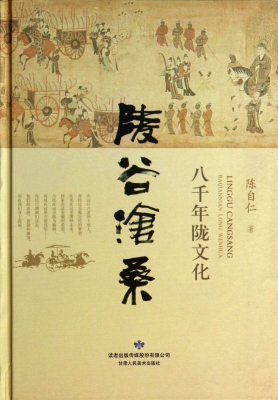 陵谷沧桑
八千年陇文化
LINGGU CANGSANG
BAQIANNIAN LONG WENHUA
陈自仁 著
读者出版传媒股份有限公司
甘肃人民美术出版社